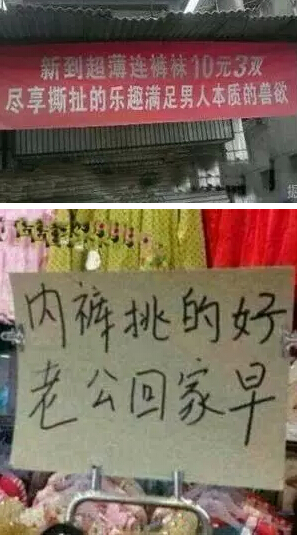 新到超薄连裤袜10元3双
尽享撕扯的乐趣满足男人本质的兽欲
内裤挑的好
老公回家早